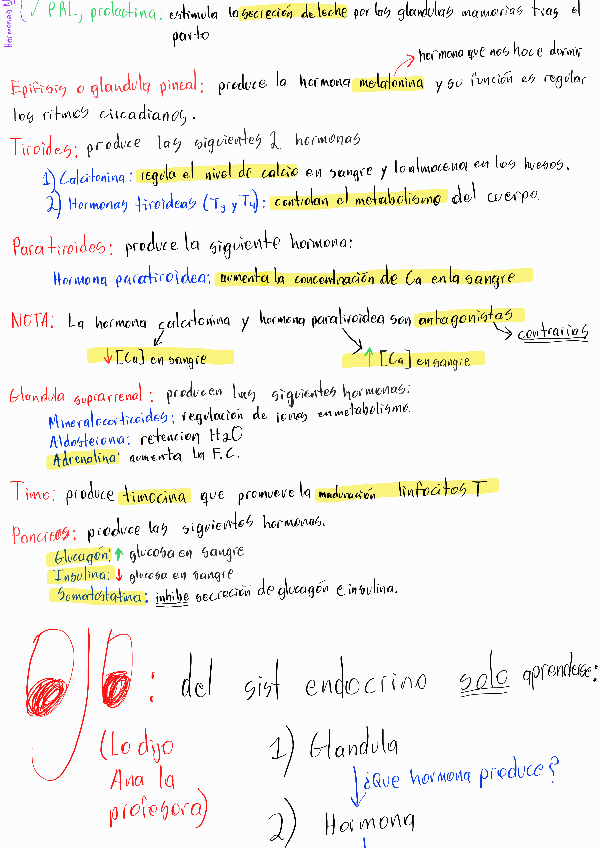 ✓ PRL, prolactina: estimula la secreción de leche por las glandulas mamarias tras el
parto
hormona que nos hace dormir
Epifisis o glandula pineal: produce la hormona melatonina y su función es regular
los ritmos circadianos.
Tiroides: produce las siguientes 2 hormonas
1) Calcitonina: regula el nivel de calcio en sangre y lo almacena en los huesos.
2) Hormonas tiroideas (T3 y T4): controlan el metabolismo del cuerpo
Paratiroides: produce la siguiente hormona:
Hormona paratiroidea: aumenta la concentración de Ca en la sangre
NOTA: La hormona calcitonina y hormona paratiroidea son antagonistas
contrarios
↓ [Ca] en sangre
↑ [Ca] en sangre
Glandula suprarrenal: producen las siguientes hormonas:
Mineralocorticoides: regulación de iones en metabolismo.
Aldosterona: retencion H2O
Adrenalina: aumenta la F.C.
Timo: produce timocina que promueve la maduración linfocitos T
Pancreas: produce las siguientes hormonas.
Glucagón: ↑ glucosa en sangre
Insulina: ↓ glucosa en sangre
Somatostatina: inhibe secreción de glucagón e insulina.
: del sist endocrino solo aprenderse:
(Lo dijo
Ana la
profesora)
1) Glandula
¿Que hormona produce?
2) Hormona